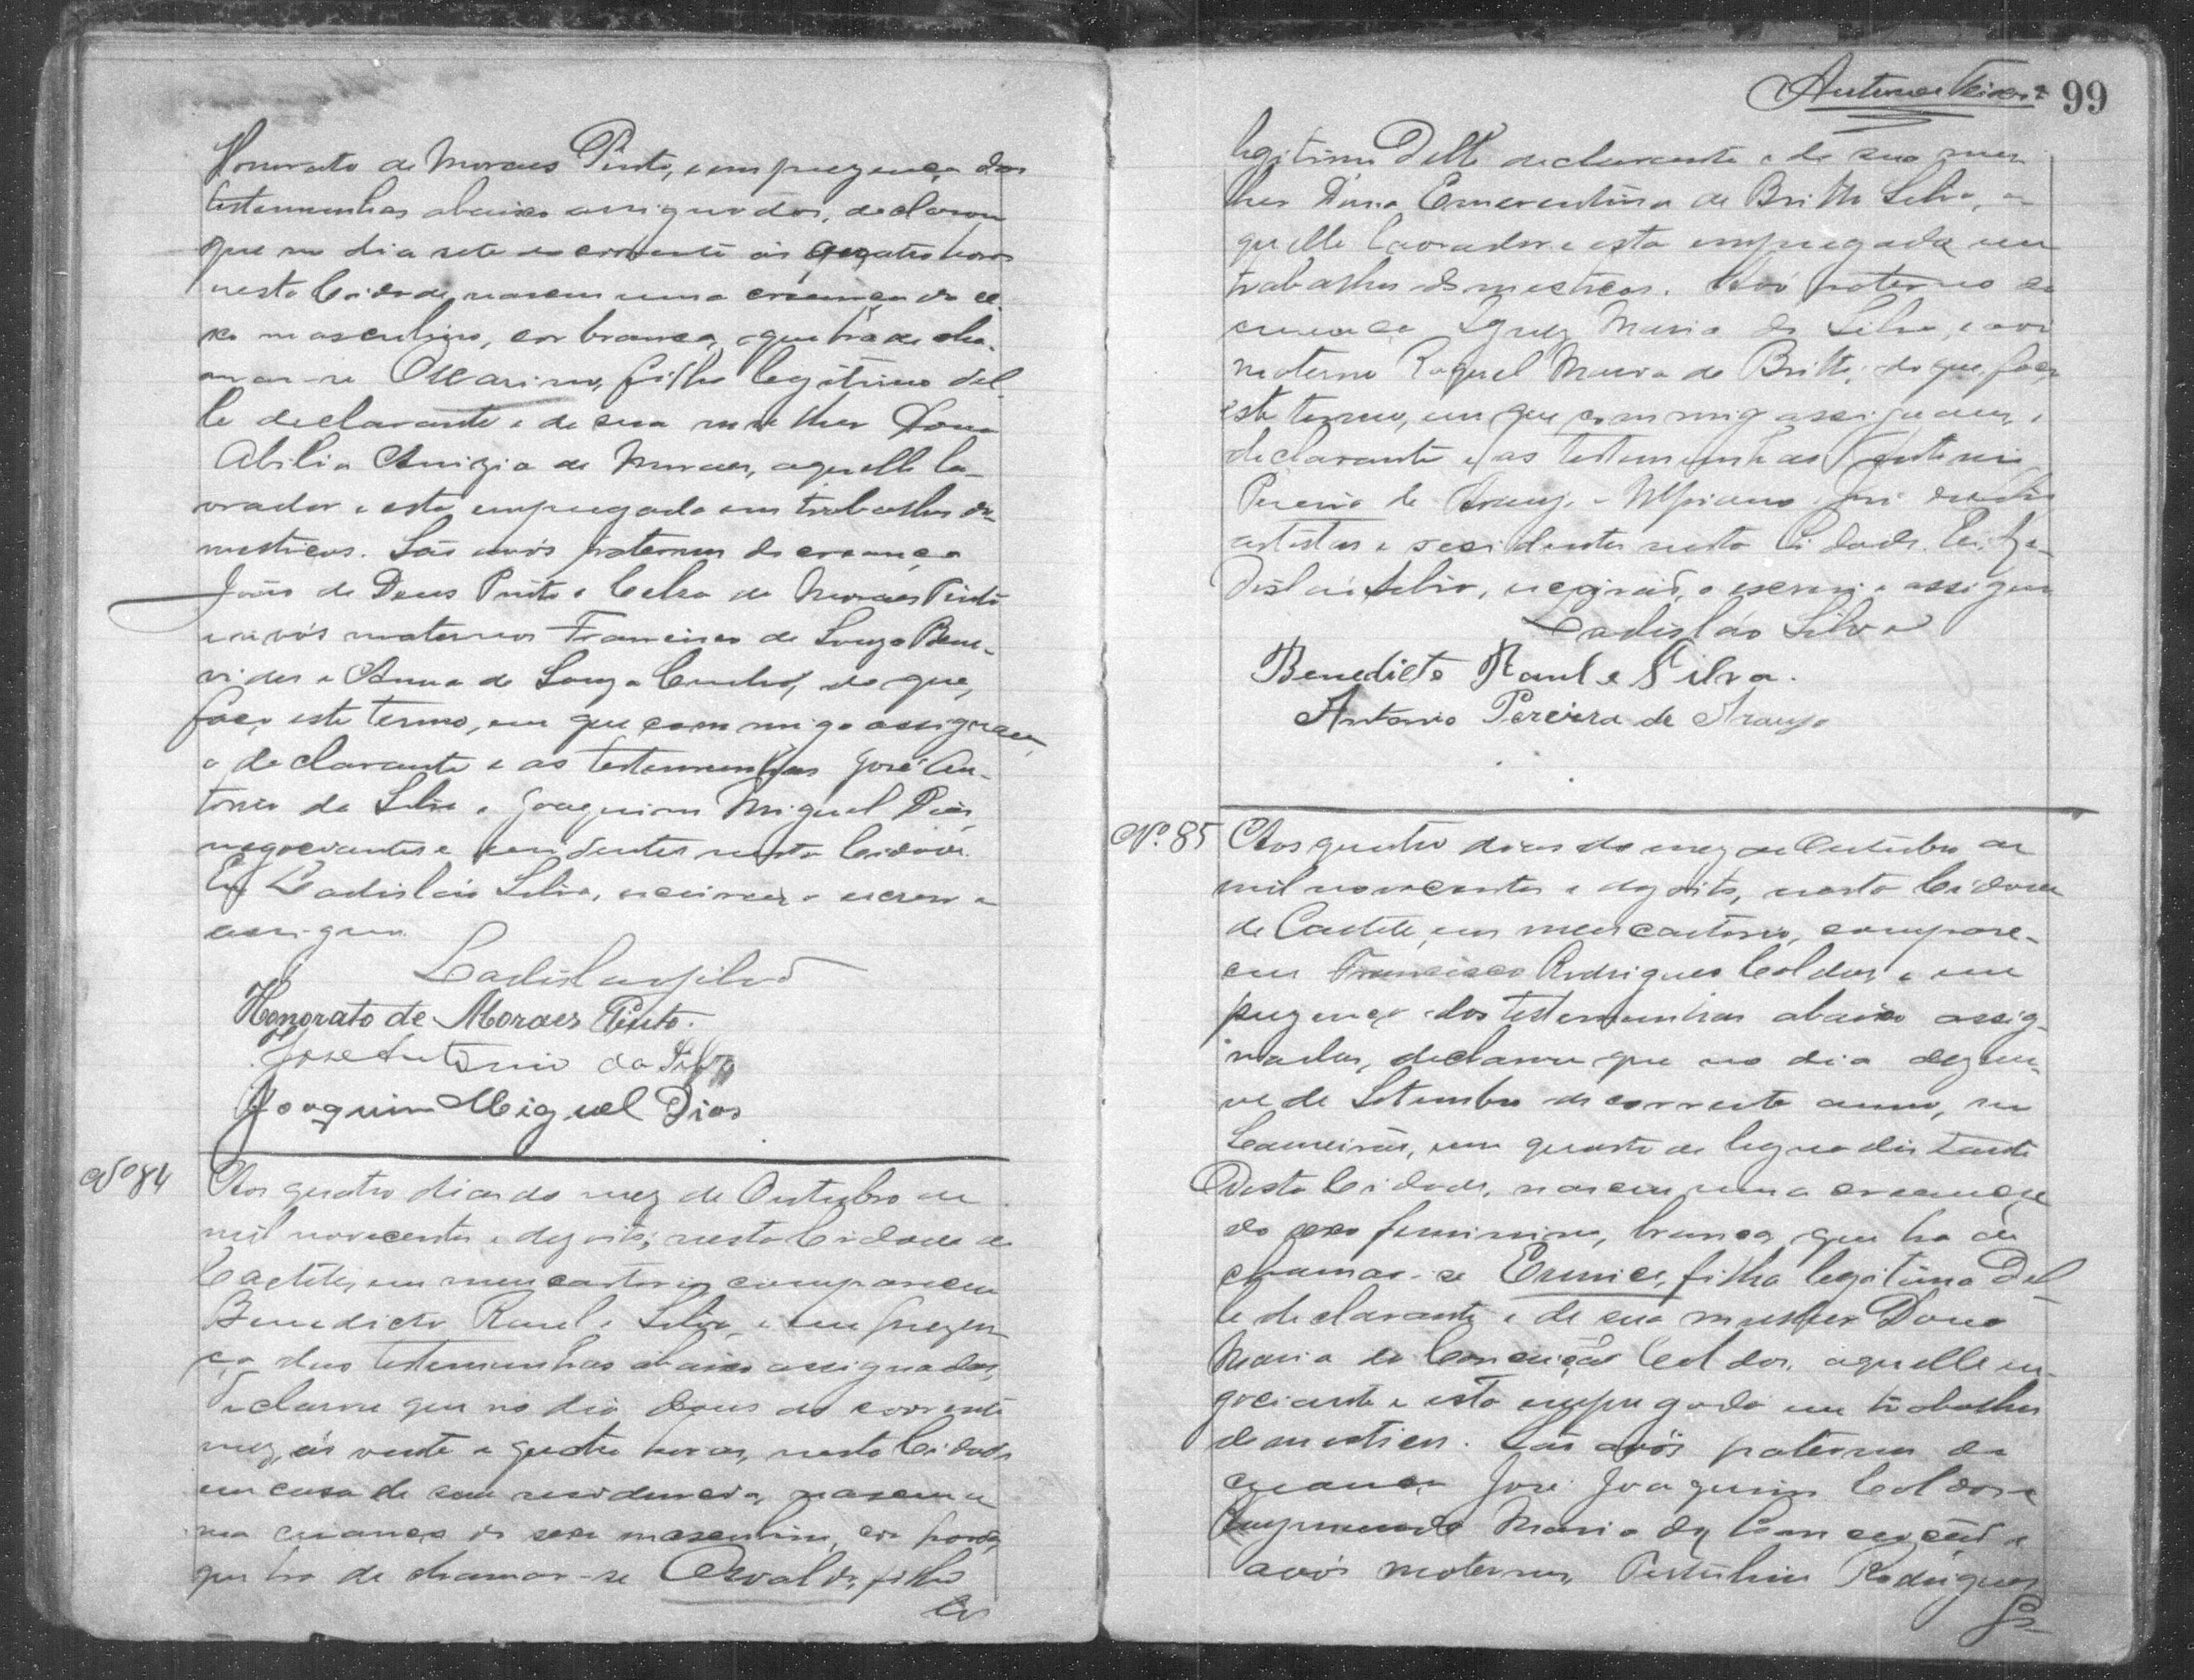 Honorato de Moraes Pinto, e em prezença das
testemunhas abaixo assignadas, declarou
que no dia sete do corrente ás quatro horas
nesta Cidade, nasceu uma creança do se-
xo masculino, cor branca, que ha de cha-
mar-se Oscarino, filho legitimo del-
le declarante e de sua mulher Dona
Abilia Anizia de Moraes, aquelle la-
vrador e esta empregada em trabalhos do-
mesticos. São avós paternos da creança
João de Deus Pinto e Celsa de Moraes Pinto
e avós maternos Francisco de Souza Bene-
vides e Anna de Souza Coelho, do que,
faço este termo, em que commigo assignam
o declarante e as testemunhas José An-
tonio da Silva e Joaquim Miguel Dias,
negociantes e residentes nesta Cidade.
Eu Ladisláo Silva, escrivão o escrevi e
assigno.
Ladislau Silva
Honorato de Moraes Pinto.
José Antonio da Silva
Joaquim Miguel Dias
Nº 84 Aos quatro dias do mez de Outubro de
mil novecentos e dezoito, nesta Cidade de
Caeteté, em meu cartorio compareceu
Benedicto Raul e Silva, e em prezen-
ça das testemunhas abaixo assignadas,
declarou que no dia dous do corrente
mez, ás vinte e quatro horas, nesta Cidade
em casa de sua residencia, nasceu u
ma creança do sexo masculino, cor parda,
que ha de chamar-se Osvaldo, filho
Antonio Teixeira 99
legitimo delle declarante e de sua mu-
lher Dona Emerentina de Britto Silva, a-
quelle lavrador e esta empregada em
trabalhos domesticos. Avó paterna da
creança Ignez Maria da Silva, e avó
materna Raquel Maria de Britto; do que faço
este termo, em que commigo assignam, o
declarante e as testemunhas Antonio
Pereira de Araujo e Ulpiano José
artistas e residentes nesta Cidade. Eu, La-
disláo Silva, escrivão, o escrevi e assigno
Ladisláo Silva
Benedicto Raul e Silva.
Antonio Pereira de Araujo
Nº. 85 Aos quatro dias do mez de Outubro de
mil novecentos e dezoito, nesta Cidade
de Caeteté, em meu cartorio, compare-
ceu Francisco Rodrigues Coldas, e em
prezença das testemunhas abaixo assig-
nadas, declarou que no dia dezeno-
ve de Setembro do corrente anno, no
Lameirão, um quarto de legua distante
desta Cidade, nasceu uma creança
do sexo feminino, branca, que ha de
chamar-se Eunice, filha legitima del-
le declarante e de sua mulher Dona
Maria da Conceição Coldas, aquelle ne-
gociante e esta empregada em trabalhos
domesticos. São avós paternos da
creança José Joaquim Coldas e
Raymunda Maria da Conceição e
avós maternos, Rodrigues